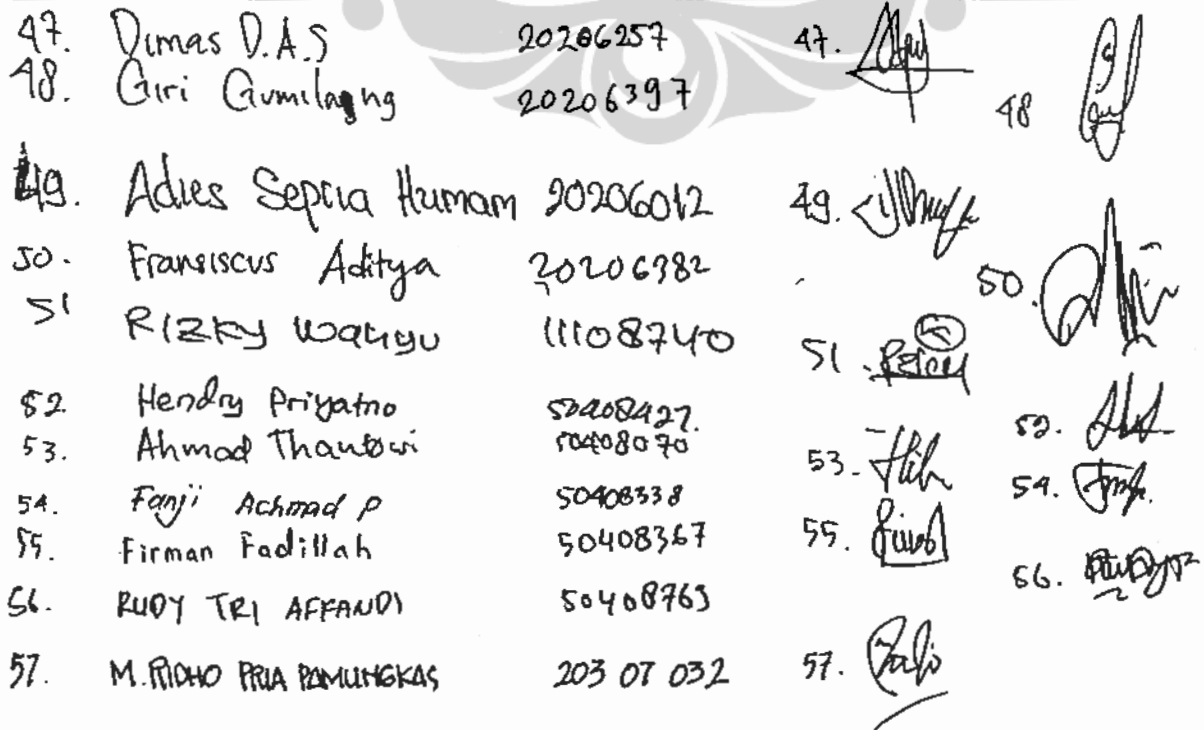 47. Dimas D.A.S 20206257 47.
48. Giri Gumilang 20206397 48
49. Adies Septia Humam 20206012 49.
50. Fransiscus Aditya 20206382 50.
51 Rizky Wahyu 11108740 51.
52. Hendry Priyatno 50408427. 52.
53. Ahmad Thantowi 50408070 53.
54. Fanji Achmad P 50408338 54.
55. Firman Fadillah 50408367 55.
56. RUDY TRI AFFANDI 50408763 56.
57. M. RIDHO PRIA PAMUNGKAS 203 07 032 57.